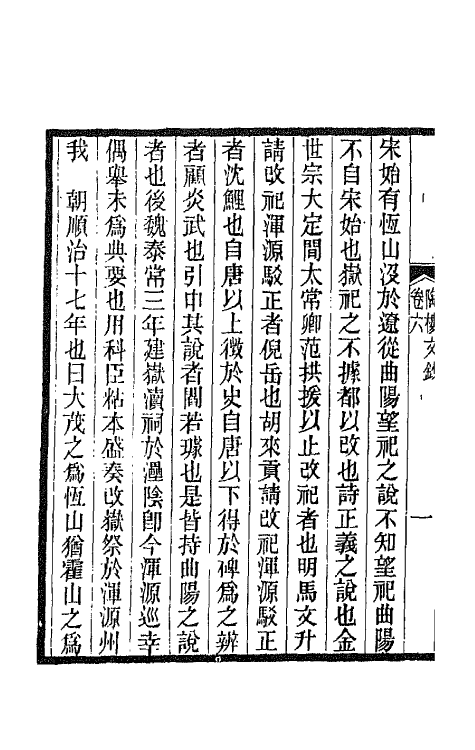 陶樓文鈔
卷六
一
宋始有恆山沒於遼從曲陽望祀之說不知望祀曲陽
不自宋始也嶽祀之不據都以改也詩正義之說也金
世宗大定間太常卿范拱援以止改祀者也明馬文升
請改祀渾源駁正者倪岳也胡來貢請改祀渾源駁正
者沈鯉也自唐以上徵於史自唐以下得於碑爲之辨
者顧炎武也引申其說者閻若璩也是皆持曲陽之說
者也後魏泰常三年建嶽瀆祠於㶟陰卽今渾源巡幸
偶舉未爲典要也用科臣粘本盛奏改嶽祭於渾源州
我　朝順治十七年也曰大茂之爲恆山猶霍山之爲